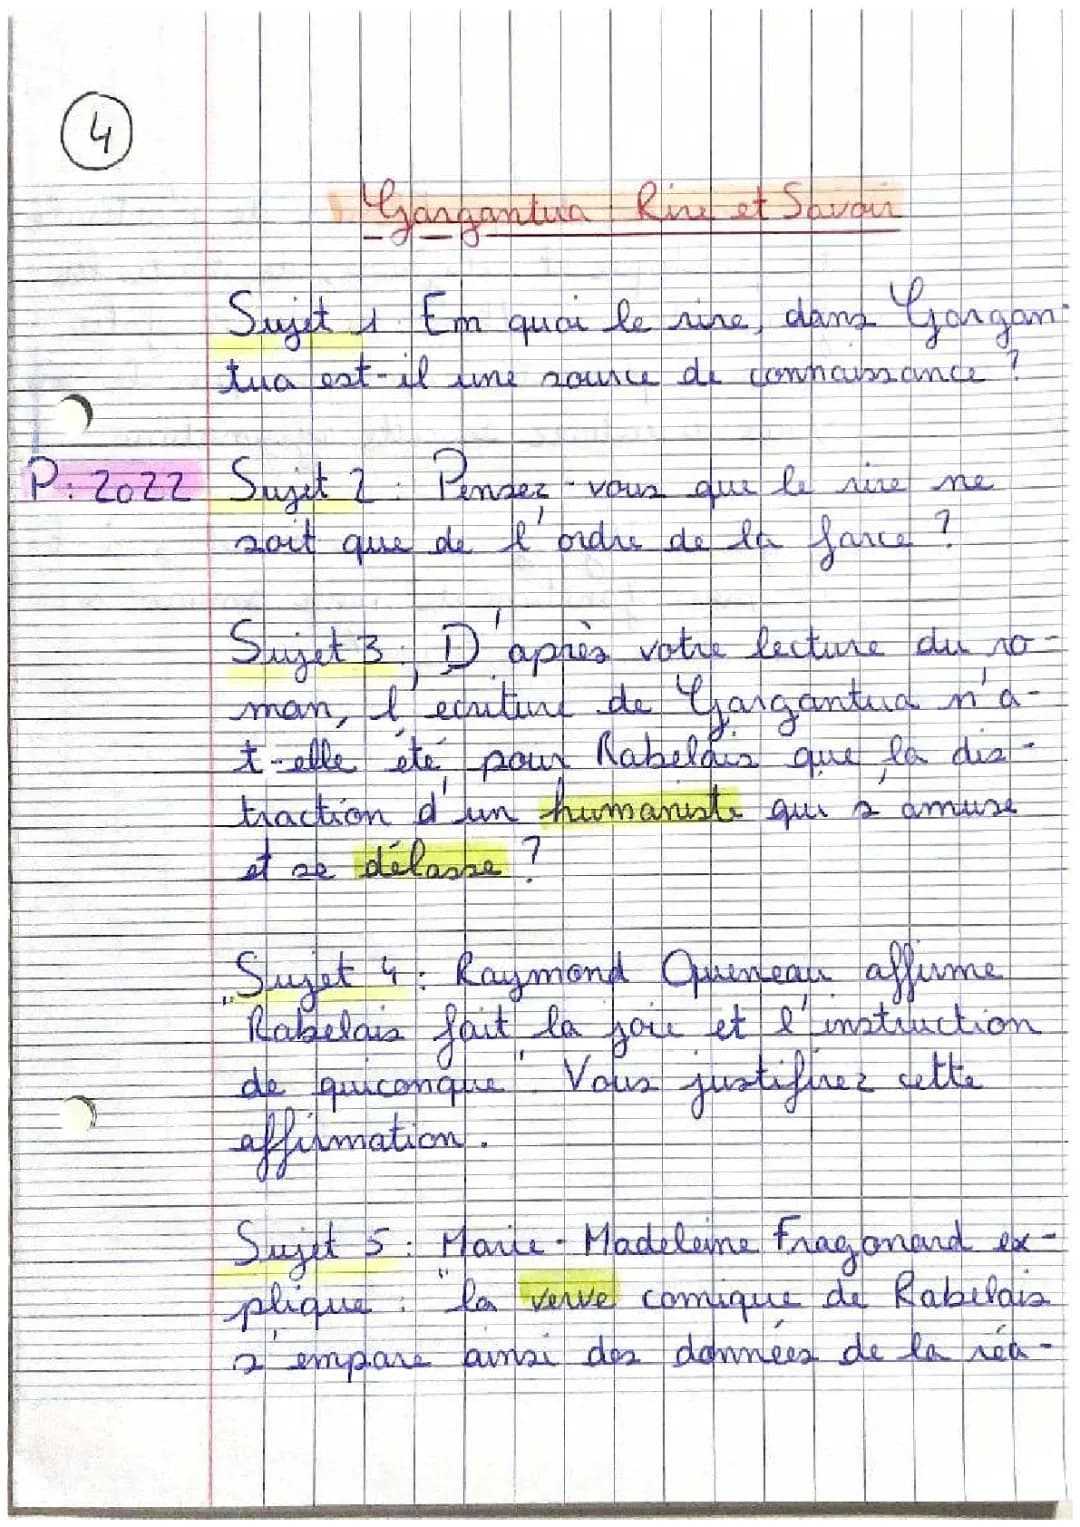 4
Gargantua Rire et Savoir
Sujet 1 : En quoi le rire, dans Gargan-
tua est-il une source de connaissance ?
P : 2022 Sujet 2 : Pensez-vous que le rire ne
soit que de l'ordre de la farce ?
Sujet 3 : D'après votre lecture du ro-
man, l'écriture de Gargantua n'a-
t-elle été pour Rabelais que la dis-
traction d'un humaniste qui s'amuse
et se délasse ?
Sujet 4 : Raymond Queneau affirme
"Rabelais fait la joie et l'instruction
de quiconque". Vous justifirez cette
affirmation.
Sujet 5 : Marie-Madeleine Fragonard ex-
plique : "la verve comique de Rabelais
s'empare ainsi des données de la réa-